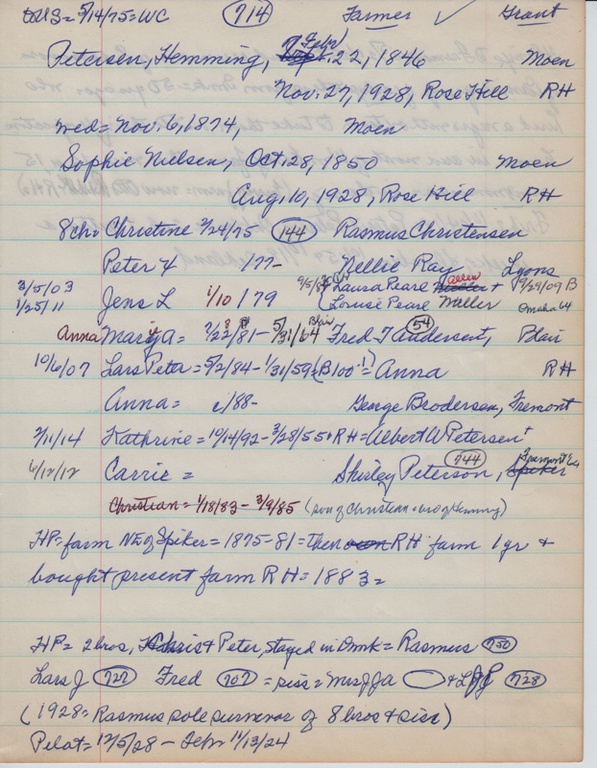 = 5/14/75 = WC 714 Farmer ✓ Grant
Petersen, Hemming, Febr 22, 1846 Moen
Nov. 27, 1928, Rose Hill RH
Wed = Nov. 6, 1874, Moen
Sophie Nielsen, Oct. 28, 1850 Moen
Aug. 10, 1928, Rose Hill RH
8 ch = Christine 2/24/75 144 Rasmus Christensen
Peter 4 /77- Nellie Ray Lyons
3/5/03 9/5/84 Laura Pearl Allen + 9/29/09 B
1/25/11 Jens L 1/10/79 Louise Pearl Miller Omaha 64
Anna Mary A = 2/22/81 - 5/31/64 Blair Fred T Andersen 54, Blair
10/6/07 Lars Peter = 5/2/84 - 1/31/59 (B100-1) = Anna RH
Anna = c/88- George Brodersen, Fremont
2/11/14 Kathrine = 10/14/92 - 3/28/55 RH = Albert W Petersen +
6/12/12 Carrie = Shirley Peterson 744, Fremont 64 Spiker
Christian = 1/18/83 - 3/9/85 (son of Christian = bro of Hemming)
HP = farm NE of Spiker = 1875-81 = Then RH farm 1 yr +
bought present farm RH = 1883 =
HP = 2 bros, Chris + Peter, stayed in Dmk = Rasmus 750
Lars J 727 Fred 707 = siss = Mrs J JA + L 728
(1928 = Rasmus sole survivor of 8 bros + siss)
Pilot = 12/5/28 - 11/13/24